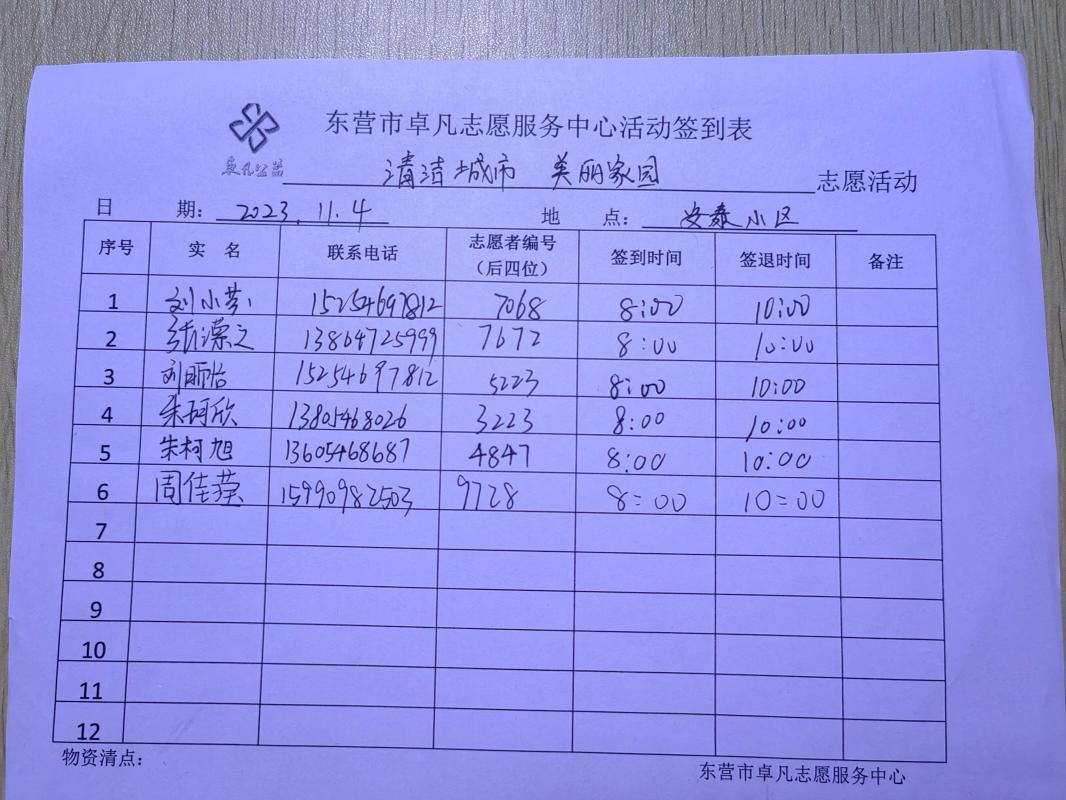 东营市卓凡志愿服务中心活动签到表
卓凡公益
清洁城市 美丽家园 志愿活动
日 期： 2023.11.4 地 点： 安泰小区
序号 实 名 联系电话 志愿者编号（后四位） 签到时间 签退时间 备注
1 刘小 15254697812 7068 8:00 10:00
2 张濴之 13864725999 7672 8:00 10:00
3 刘丽怡 15254697812 5223 8:00 10:00
4 朱珂欣 13805468026 3223 8:00 10:00
5 朱柯旭 13605468687 4847 8:00 10:00
6 周佳 15990982503 9728 8:00 10:00
7
8
9
10
11
12
物资清点：
东营市卓凡志愿服务中心